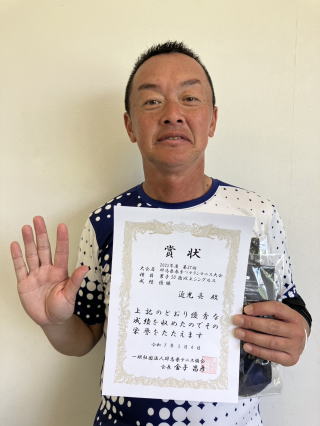 賞状
2021年度 第27回
大会名 群馬県春季ベテランテニス大会
種目 男子50歳以上シングルス
成績 優勝
近光 長 殿
上記のとおり優秀な
成績を収めたのでその
栄誉をたたえます
令和3年5月4日
一般社団法人群馬県テニス協会
会長 金子昌彦